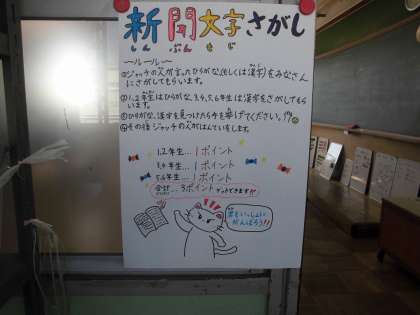 新聞文字さがし
しん ぶん も じ
〜ルール〜
①ジャッチの人が言ったひらがな(もしくは漢字)をみなさん
にさがしてもらいます。
②1,2年生はひらがな、3,4,5,6年生は漢字をさがしてもら
います。
③ひらがな、漢字を見つけたら手を挙げてください。
④その後ジャッチの人がはんていをします。
1,2年生…1ポイント
3,4年生…1ポイント
5,6年生…1ポイント
合計…3ポイントゲットできます!!
君もいっしょに
がんばろう!!